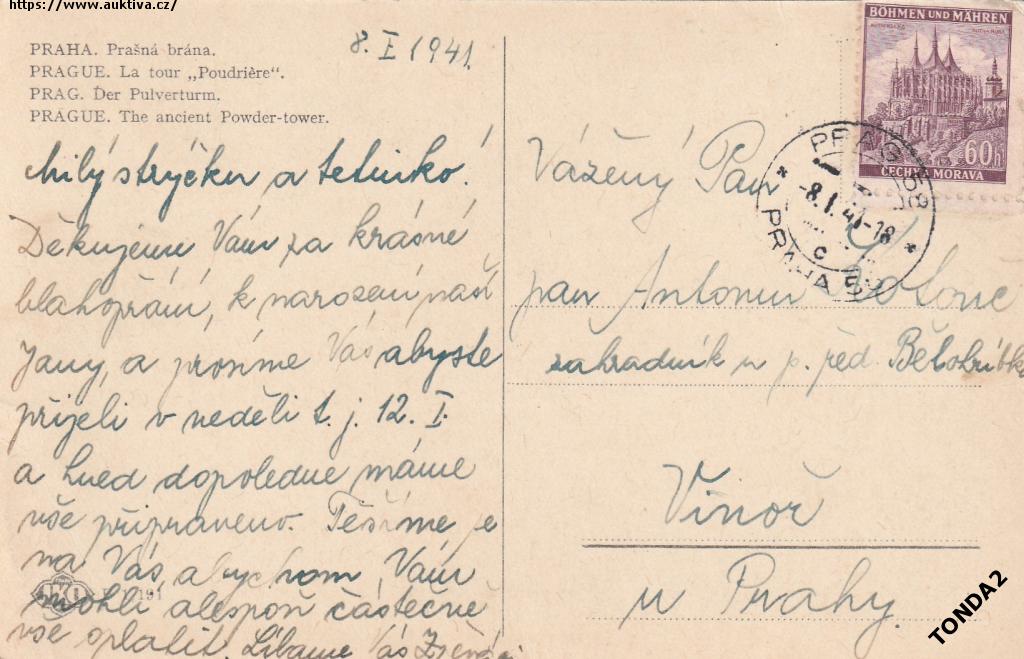 https://www.auktiva.cz/
PRAHA. Prašná brána.
PRAGUE. La tour „Poudrière".
PRAG. Der Pulverturm.
PRAGUE. The ancient Powder-tower.
8. I 1941.
Milý strýčku a tetinko!
Děkujeme Vám za krásné
blahopřání, k narození naší
Jany, a prosíme Vás abyste
přijeli v neděli t. j. 12. I.
a hned dopoledne máme
vše připraveno. Těšíme se
na Vás, abychom Vám
mohli alespoň částečně
vše oplatit. Líbáme Vás
191
BÖHMEN UND MÄHREN
60h
ČECHY A MORAVA
PRAG 58
-8.I.41-18
c
PRAHA 58
Vážený Pan
pan Antonín
zahradník u p. řed. Bělohříbka
Vinoř
u Prahy.
TONDA2